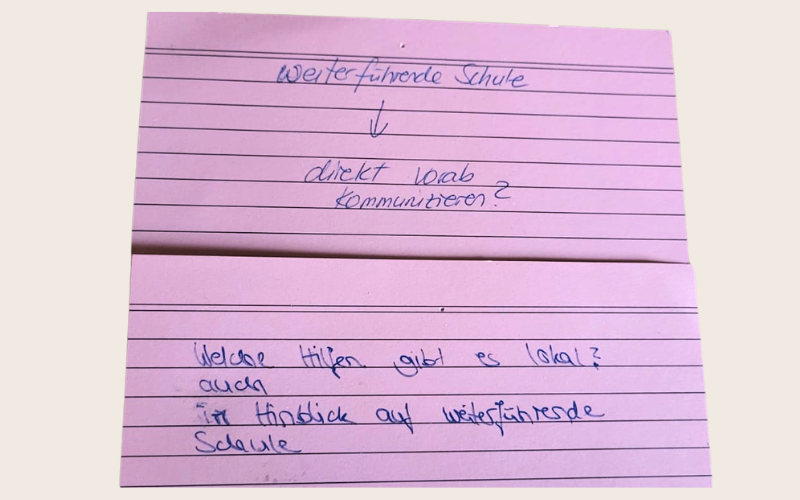 weiterführende Schule
↓
direkt vorab
kommunizieren?
Welche Hilfen gibt es lokal?
auch
im Hinblick auf weiterführende
Schule